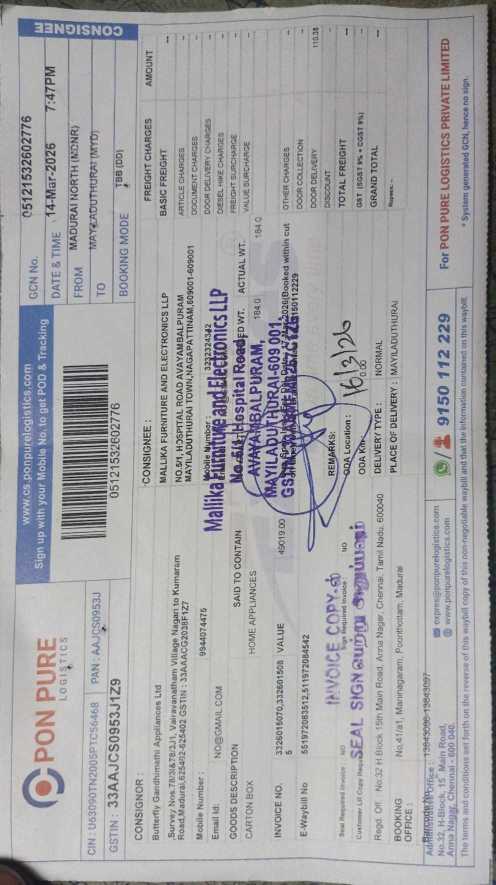 PON PURE
LOGISTICS
www.cs.ponpurelogistics.com
Sign up with your Mobile No. to get POD & Tracking
CONSIGNEE
CIN : U63090TN2005PTC56468
PAN : AAJCS0953J
GSTIN : 33AAJCS0953J1Z9
05121532602776
GCN No. 05121532602776
DATE & TIME 14-Mar-2026 7:47PM
FROM MADURAI NORTH (MDNR)
TO MAYILADUTHURAI (MYD)
BOOKING MODE TBB (DD)
CONSIGNOR :
Butterfly Gandhimathi Appliances Ltd
,Survey Nos.78/3I&78/3J1, Vairavanatham Village Nagari to Kumaram
Road,Madurai,625402-625402 GSTIN : 33AAACG2038F1Z7
Mobile Number : 9944074475
Email Id: NO@GMAIL.COM
CONSIGNEE :
MALLIKA FURNITURE AND ELECTRONICS LLP
NO.5/1, HOSPITAL ROAD AVAYAMBALPURAM
MAYILADUTHURAI TOWN,NAGAPATTINAM,609001-609001
Mobile Number : 
Mallika Furniture and Electronics LLP
No. 5/1, Hospital Road,
AVAYAMBALPURAM,
MAYILADUTHURAI-609 001.
GOODS DESCRIPTION SAID TO CONTAIN ACTUAL WT.
CARTON BOX HOME APPLIANCES 184.0 184.0
INVOICE NO. 3326015070,332601508 VALUE 49019.00
5
E-Waybill No 551972083512,511972084542
FREIGHT CHARGES AMOUNT
BASIC FREIGHT --
ARTICLE CHARGES --
DOCUMENT CHARGES --
DOOR DELIVERY CHARGES --
DIESEL HIKE CHARGES --
FREIGHT SURCHARGE --
VALUE SURCHARGE --
OTHER CHARGES --
DOOR COLLECTION --
DOOR DELIVERY 110.38
DISCOUNT --
TOTAL FREIGHT --
GST (SGST 9% + CGST 9%) --
GRAND TOTAL --
Rupees.--
REMARKS:
16/3/26
Seal Required Invoice : NO
Sign Required Invoice : NO
ODA Location :
ODA Km : 0.00
INVOICE COPY-ல்
SEAL SIGN பெற்று அனுப்பவும்
Regd. Off. : No:32 H Block 15th Main Road, Anna Nagar, Chennai, Tamil Nadu, 600040
DELIVERY TYPE : NORMAL
BOOKING OFFICE : No,41/a1, Maninagaram, Poonthottam, Madurai
PLACE OF DELIVERY : MAYILADUTHURAI
No.32, H-Block, 15th Main Road,
Anna Nagar, Chennai - 600 040.
express@ponpurelogistics.com
www.ponpurelogistics.com
9150 112 229
For PON PURE LOGISTICS PRIVATE LIMITED
The terms and conditions set forth on the reverse of this waybill copy of this non-negotiable waybill and that the information contained on this waybill.
* System generated GCN, hence no sign.